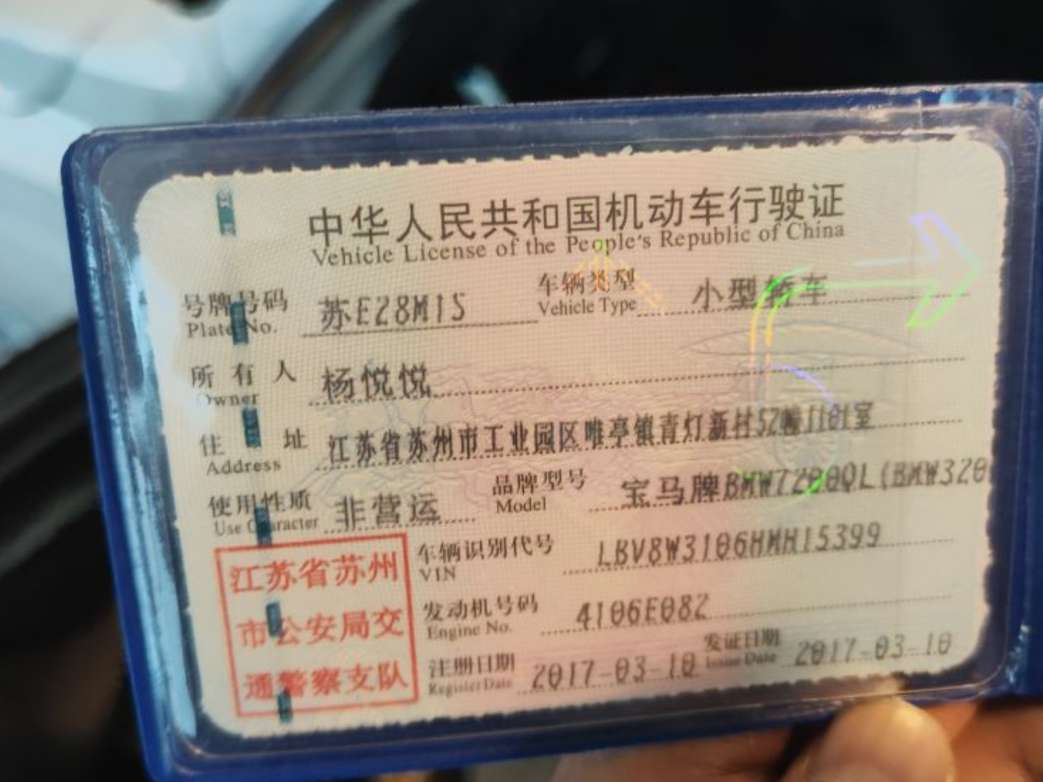 中华人民共和国机动车行驶证
Vehicle License of the People's Republic of China
号牌号码 苏E28M1S 车辆类型 小型轿车
Plate No. Vehicle Type
所有人 杨悦悦
Owner
住址 江苏省苏州市工业园区唯亭镇青灯新村52幢1101室
Address
使用性质 非营运 品牌型号 宝马牌BMW7200QL(BMW320
Use Character Model
江苏省苏州
市公安局交
通警察支队
车辆识别代号 LBV8W3106HMH15399
VIN
发动机号码 4106E082
Engine No.
注册日期 2017-03-10 发证日期 2017-03-10
Register Date Issue Date